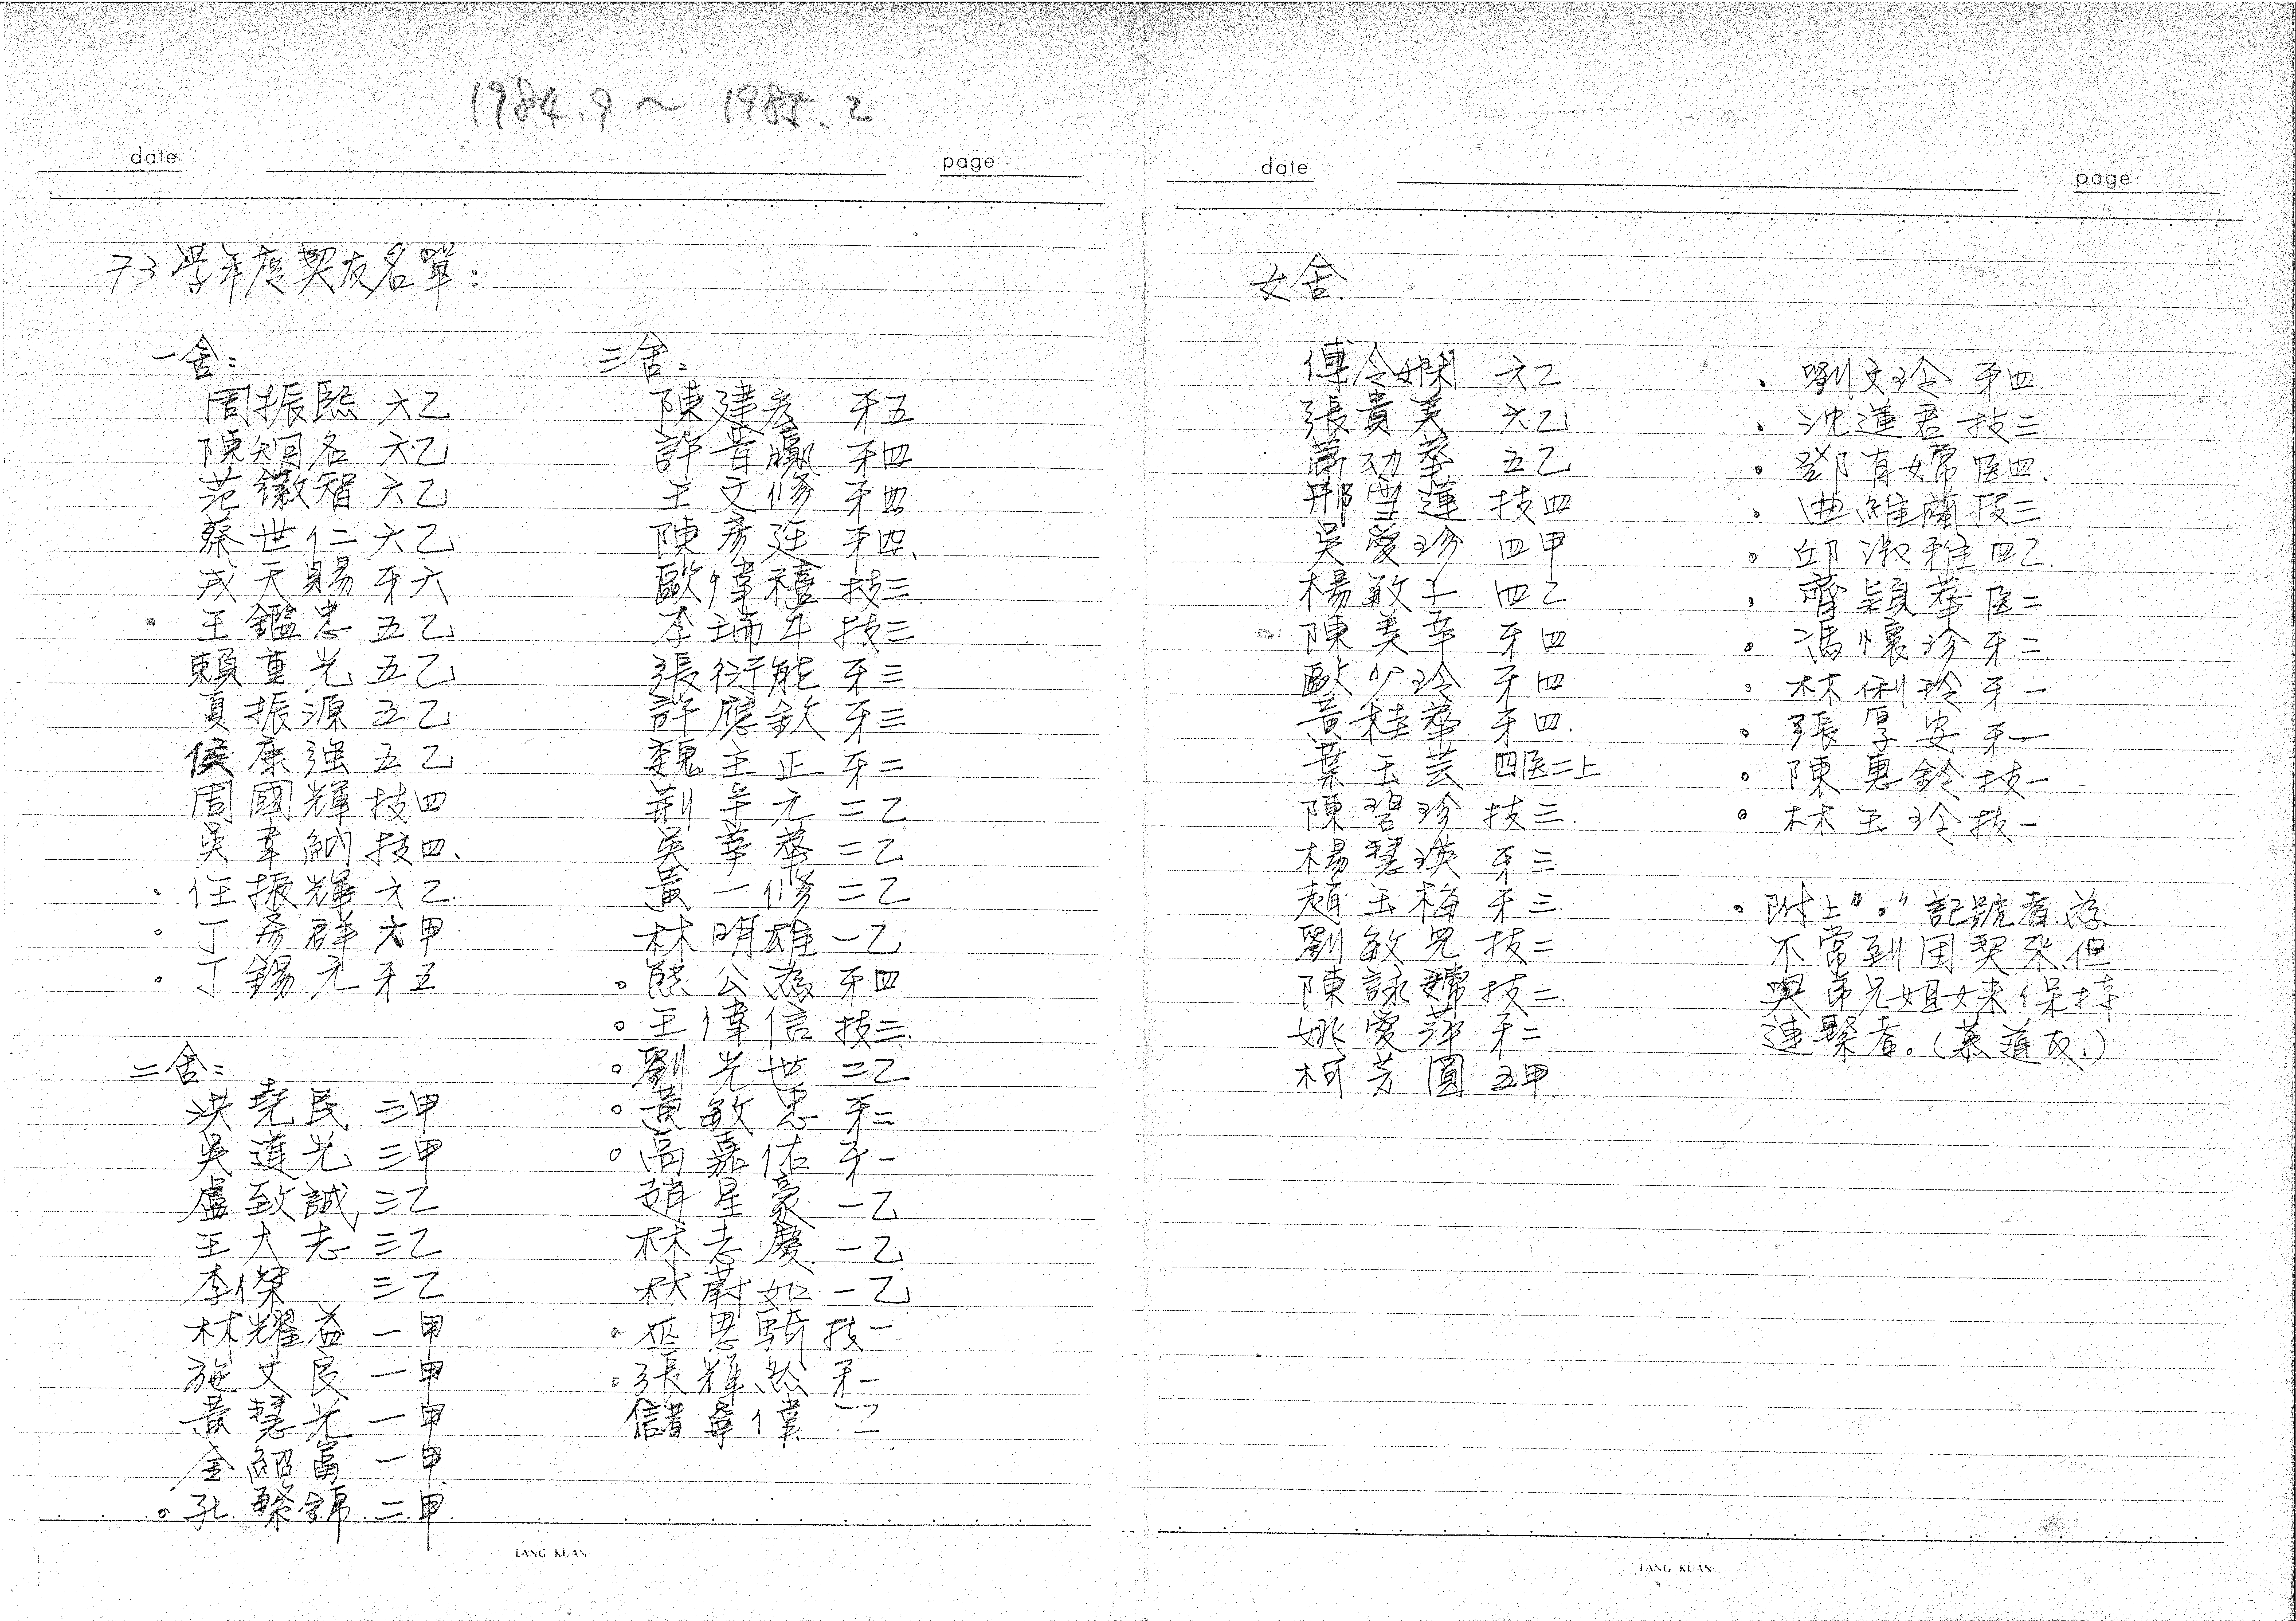 1984.9 ~ 1985.2
date
page
73學年度契友名單:
一舍:
周振熙 六乙
陳知名 六乙
范徽智 六乙
蔡世仁 六乙
戎天賜 牙六
• 王鑑忠 五乙
賴重光 五乙
夏振源 五乙
侯康強 五乙
周國輝 技四
吳韋納 技四、
• 任振輝 六乙.
。丁彥群 六甲
。丁錫元 牙五
二舍:
洪堯民 三甲
吳道光 三甲
盧致誠 三乙
王大志 三乙
李傑 三乙
林耀益 一甲
施文良 一甲
黃慧光 一甲
金紹富 一甲
。孔繁錦 二甲
三舍:
陳建宏 牙五
許晋贏 牙四
王文修 牙四
陳彥廷 牙四、
歐偉禧 技三
李瑞年 技三
張衍能 牙三
許應欽 牙三
魏主正 牙二
荊辛元 二乙
吳華 二乙
黃一修 二乙
林明雄 一乙
。熊公為 牙四
。王偉信 技二.
。劉光世 二乙
。黃敏忠 牙二
。高嘉佑 牙一
趙星豪 一乙
林志慶 一乙
林蔚如 一乙
。巫思騎 技一
。張輝然 牙一
儲寧偉
LANG KUAN
date
page
女舍.
傅令嫻 六乙
張貴美 六乙
蕭功華 五乙
邢雪蓮 技四
吳愛珍 四甲
楊敏子 四乙
陳美幸 牙四
歐少玲 牙四
黃桂華 牙四.
葉玉芸 四医二上
陳碧珍 技三.
楊慧瑛 牙三
趙玉梅 牙三.
劉敏兒 技二
陳詠嫦 技二
姚愛萍 牙二
柯芳圓 五甲
• 劉文玲 牙四.
• 沈蓮君 技三
。鄧有嫦 医四.
。曲維蘭 技三
。邱淑雅 四乙.
• 齊穎華 医二
。馮懷珍 牙二
。林俐玲 牙一
。張厚安 牙一
。陳惠鈴 技一
。林玉玲 技一
• 附上"。"記號者,為
不常到团契來但
與弟兄姐妹保持
連繫者。(慕道友.)
LANG KUAN